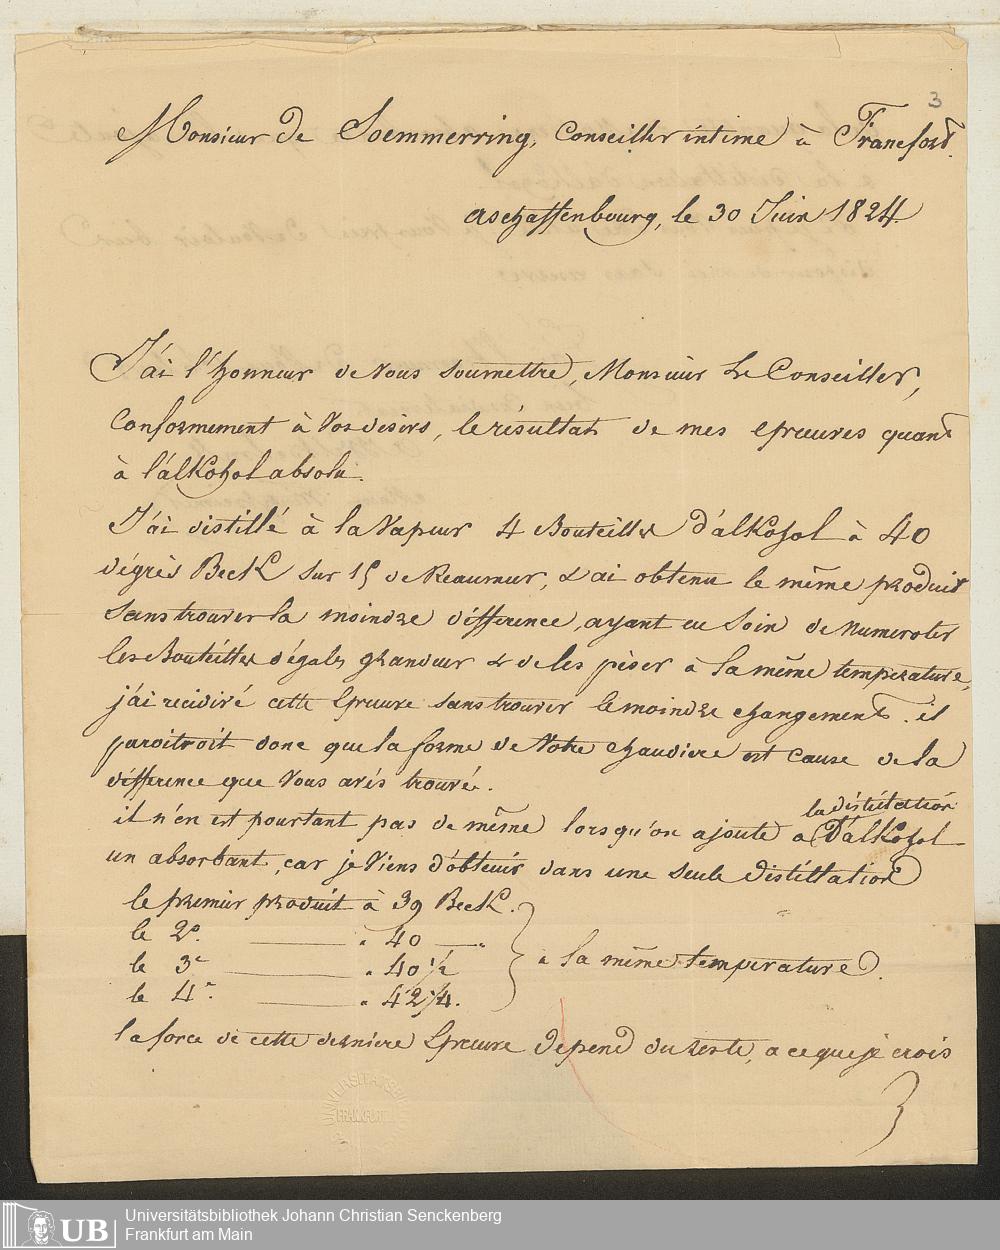 3
Monsieur de Soemmerring, Conseiller intime à Francfort.
Aschaffenbourg, le 30 Juin 1824
J'ai l'honneur de Vous soumettre, Monsieur Le Conseiller,
Conformement à Vos desirs, le résultat de mes epreuves quant
à l'alkohol absolu.
J'ai distillé à la Vapeur 4 Bouteilles d'alkohol à 40
dégrès Beck sur 15 de Reaumur, & ai obtenu le même produit
sans trouver la moindre différence, ayant eu soin de numeroter
les Bouteilles d'égale grandeur & de les peser à la même temperature,
j'ai recidivé cette Epreuve sans trouver le moindre changement. il
paroitroit donc que la forme de Votre chaudiere est cause de la
différence que Vous avés trouvé.
il n'en est pourtant pas de même lorsqu'on ajoute a la distillation d'alkohol
un absorbant, car je Viens d'obtenir dans une seule distillation
le premier produit à 39 Beck.
le 2e. — " 40 — "
le 3e — " 40 1/2
le 4e. — " 42 1/4.
à la même temperature.
la force de cette derniere Epreuve depend du reste, a ce que je crois
UNIVERSITÄTSBIBLIOTHEK
FRANKFURT
UB
Universitätsbibliothek Johann Christian Senckenberg
Frankfurt am Main